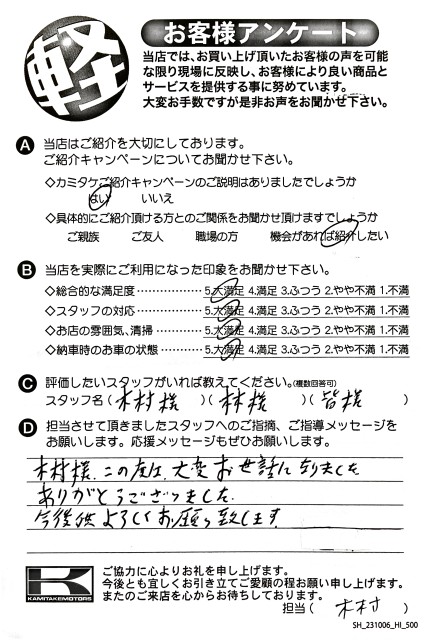 軽
お客様アンケート
当店では、お買い上げ頂いたお客様の声を可能
な限り現場に反映し、お客様により良い商品と
サービスを提供する事に努めています。
大変お手数ですが是非お声をお聞かせ下さい。
A 当店はご紹介を大切にしております。
ご紹介キャンペーンについてお聞かせ下さい。
◇カミタケご紹介キャンペーンのご説明はありましたでしょうか
はい いいえ
◇具体的にご紹介頂ける方とのご関係をお聞かせ頂けますでしょうか
ご親族 ご友人 職場の方 機会があれば紹介したい
B 当店を実際にご利用になった印象をお聞かせ下さい。
◇総合的な満足度 5.大満足 4.満足 3.ふつう 2.やや不満 1.不満
◇スタッフの対応 5.大満足 4.満足 3.ふつう 2.やや不満 1.不満
◇お店の雰囲気、清掃 5.大満足 4.満足 3.ふつう 2.やや不満 1.不満
◇納車時のお車の状態 5.大満足 4.満足 3.ふつう 2.やや不満 1.不満
C 評価したいスタッフがいれば教えてください。(複数回答可)
スタッフ名 (木村様)(林様)(皆様)
D 担当させて頂きましたスタッフへのご指摘、ご指導メッセージを
お願いします。応援メッセージもぜひお願いします。
木村様、この度は、大変お世話になりました
ありがとうございました。
今後共よろしくお願い致します
K
KAMITAKEMOTORS
ご協力に心よりお礼を申し上げます。
今後とも宜しくお引き立てご愛顧の程お願い申し上げます。
またのご来店を心からお待ちしております。
担当 (木村)
SH_231006_HI_500